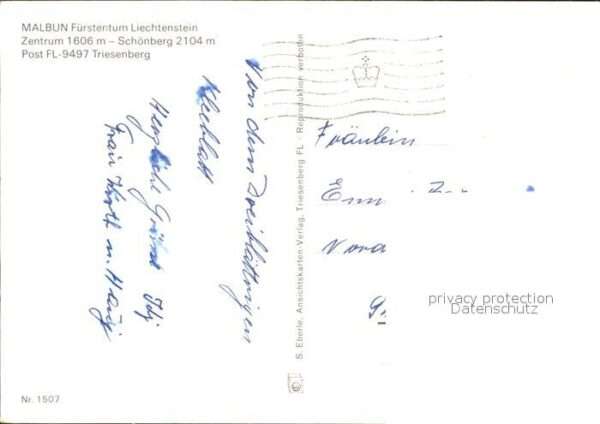 MALBUN Fürstentum Liechtenstein
Zentrum 1606 m – Schönberg 2104 m
Post FL-9497 Triesenberg
Von dem zweiblättrigen
Kleeblatt
Herzliche Grüße
Frau
S. Eberle, Ansichtskarten-Verlag, Triesenberg FL · Reproduktion verboten
Fräulein
Nora
privacy protection
Datenschutz
Nr. 1507